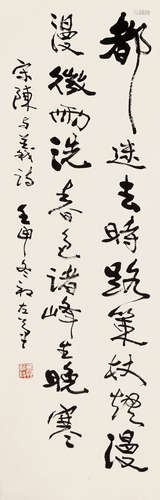 都迷去時路策杖煙漫
漫微雨洗春色諸峰生晚寒
宋陳与義詩 壬申冬初左